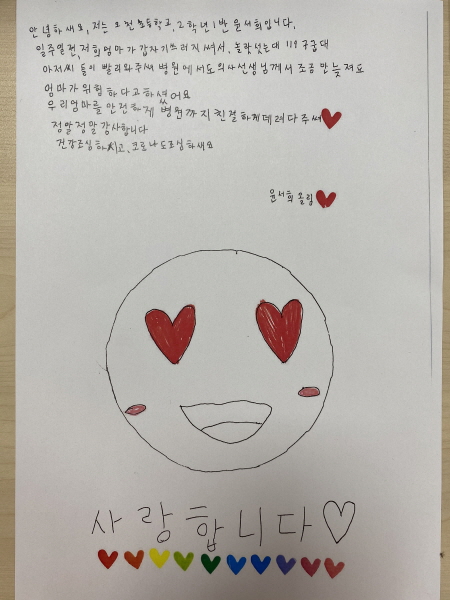 안녕하새요, 저는 오 초등학교, 2학년 1반 윤서희입니다.
일주일전, 저희엄마가 갑자기쓰러지셔서, 놀랐는대 119 구급대
아저씨 들이 빨리와주새 병원에서도의사선생님께서 조금 만늦져요
엄마가 위험하다고하셨어요
우리엄마를 안전하게 병원까지친절하게데레다주써
정말정말감사합니다
건강조심하시고, 코로나도조심하세요
윤서희올림
사랑합니다